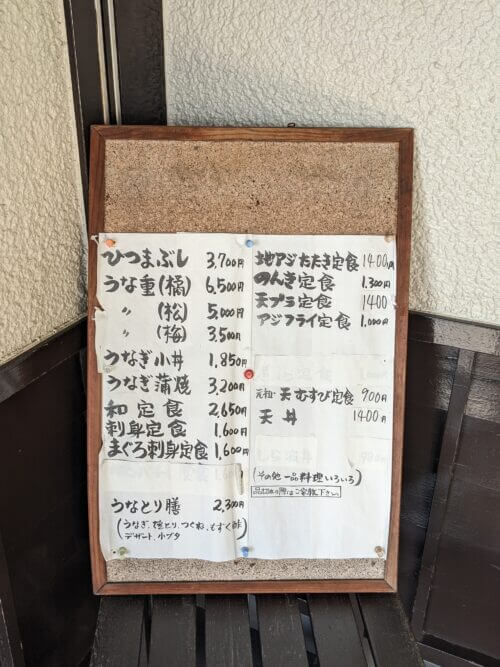 ひつまぶし 3,700円
うな重(橘) 6,500円
〃 (松) 5,000円
〃 (梅) 3,500円
うなぎ小丼 1,850円
うなぎ蒲焼 3,200円
和定食 2,650円
刺身定食 1,600円
まぐろ刺身定食 1,600円
うなとり膳 2,300円
(うなぎ、焼とり、つくね、もずく酢
デザート、小ブタ)
地アジたたき定食 1400円
のんき定食 1,300円
天プラ定食 1400
アジフライ定食 1,000円
元祖・天むすび定食 900円
天丼 1400円
(その他一品料理いろいろ)
品切れの際はご容赦下さい。